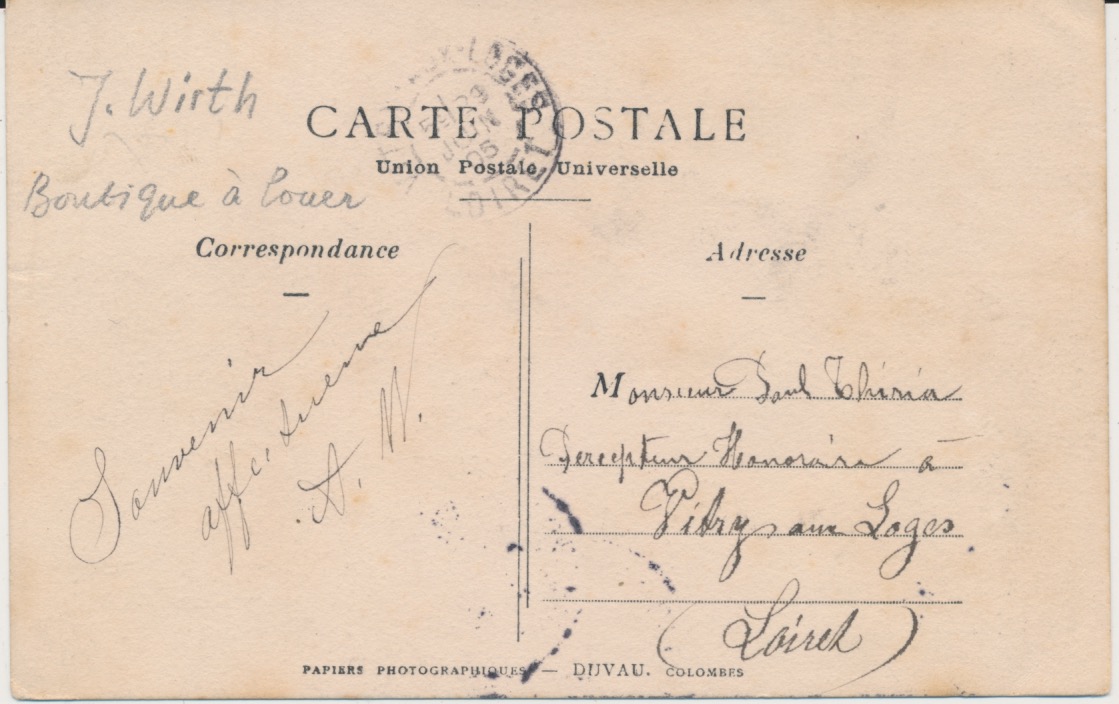 J. Wirth
Boutique à louer
CARTE POSTALE
Union Postale Universelle
Correspondance
Souvenir
affectueux
A. W.
Adresse
Monsieur Paul Thiria
Percepteur Honoraire à
Vitry aux Loges
(Loiret)
VITRY-AUX-LOGES
JUIN
05
LOIRET
PAPIERS PHOTOGRAPHIQUES — DUVAU. COLOMBES